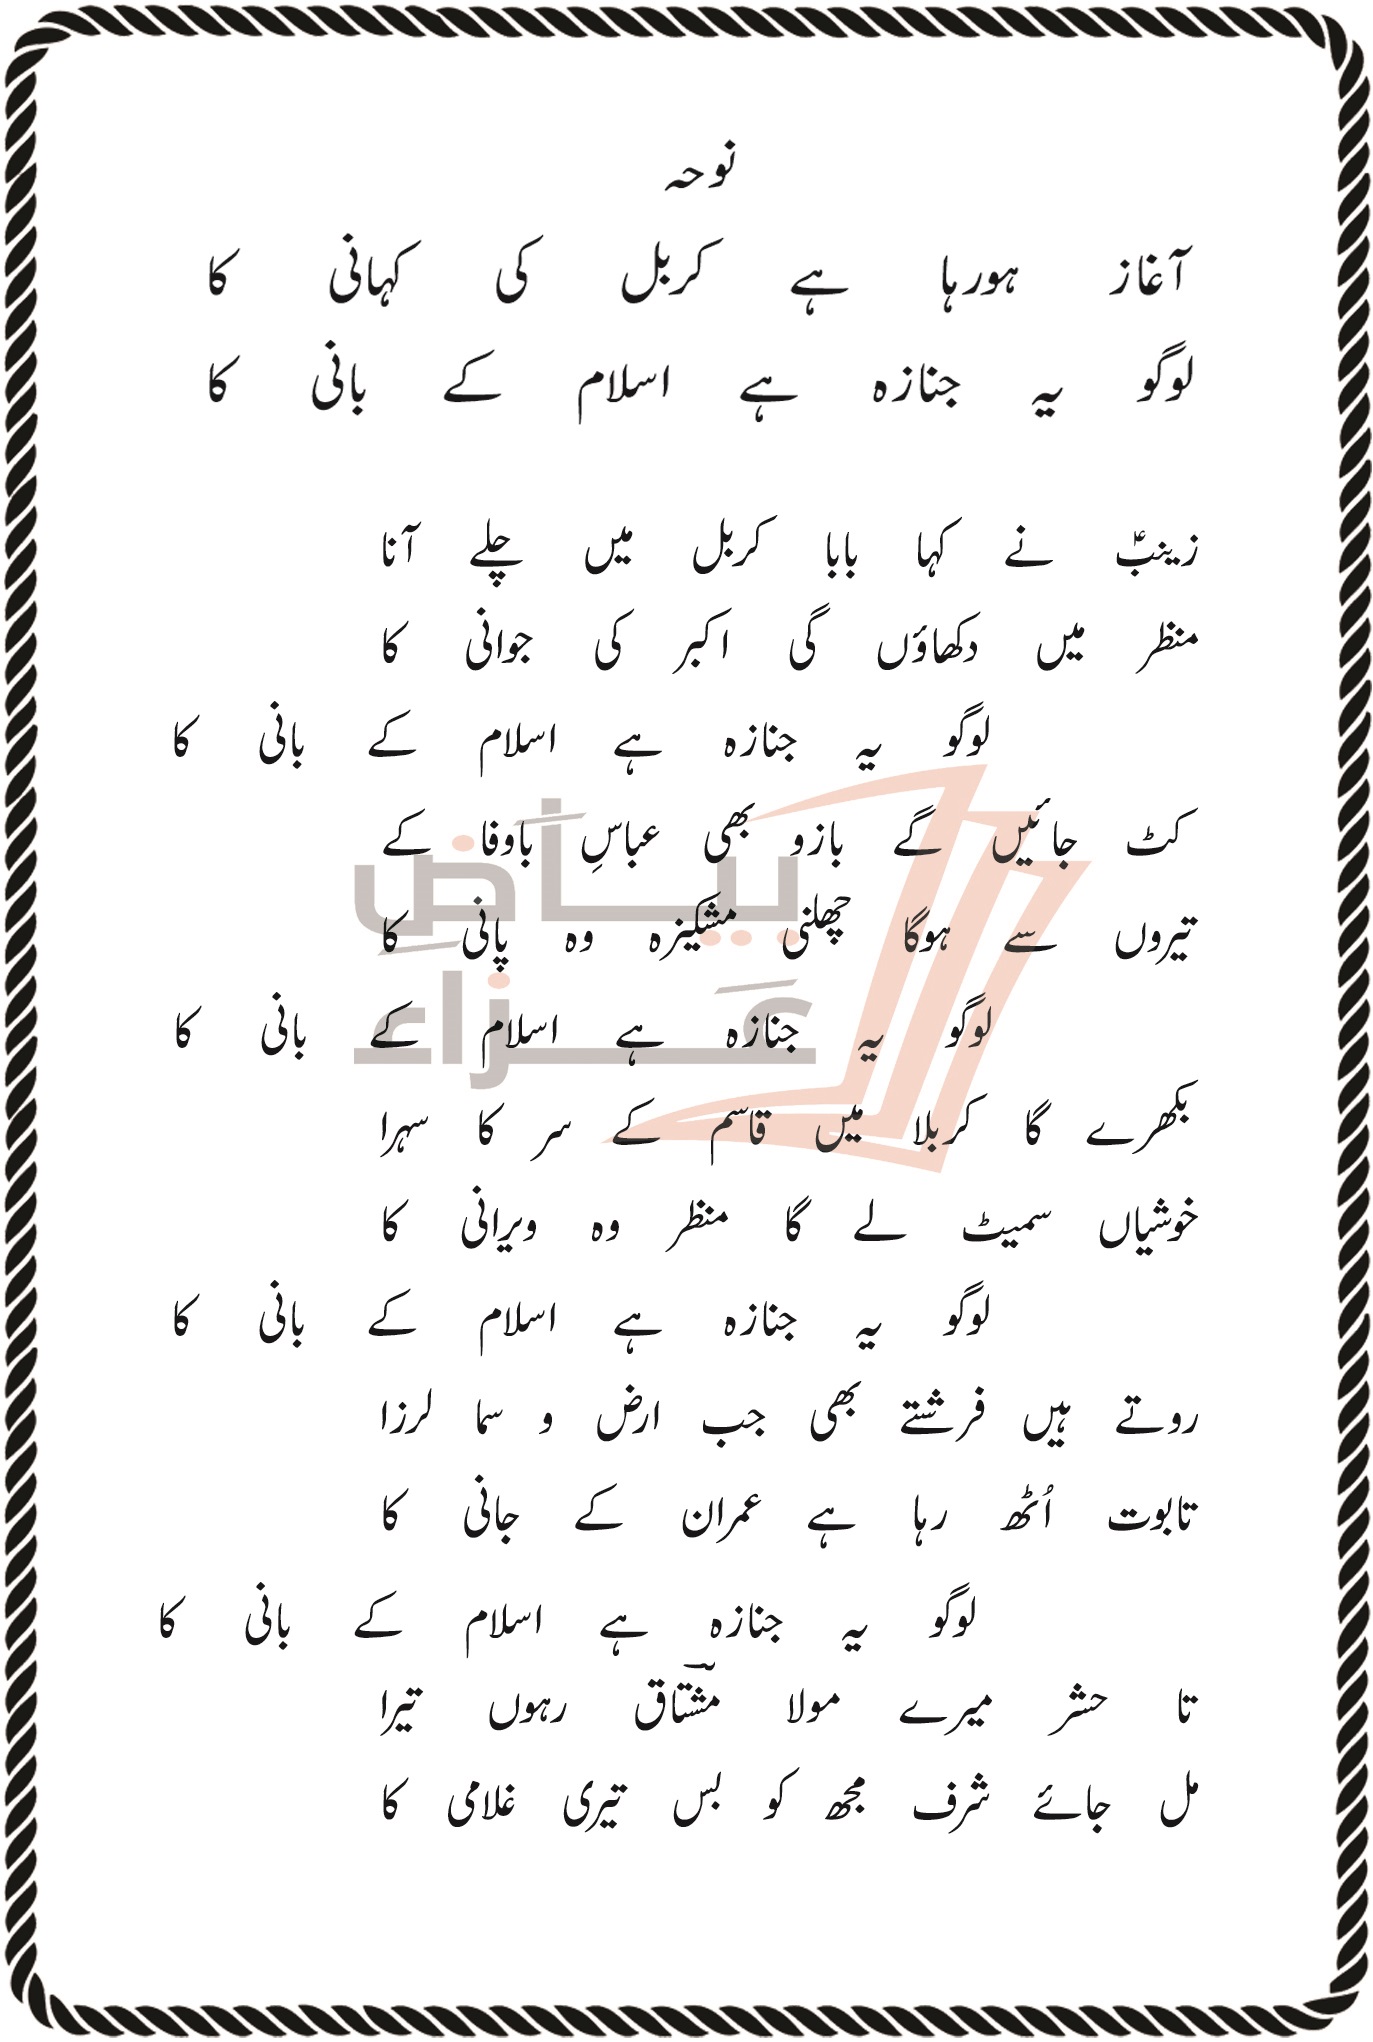 نوحہ
آغاز ہورہا ہے کربل کی کہانی کا
لوگو یہ جنازہ ہے اسلام کے بانی کا
زینبؑ نے کہا بابا کربل میں چلے آنا
منظر میں دکھاؤں گی اکبر کی جوانی کا
لوگو یہ جنازہ ہے اسلام کے بانی کا
کٹ جائیں گے بازو بھی عباسِ باوفا کے
تیروں سے ہوگا چھلنی مشکیزہ وہ پانی کا
لوگو یہ جنازہ ہے اسلام کے بانی کا
بکھرے گا کربلا میں قاسم کے سر کا سہرا
خوشیاں سمیٹ لے گا منظر وہ ویرانی کا
لوگو یہ جنازہ ہے اسلام کے بانی کا
روتے ہیں فرشتے بھی جب ارض و سما لرزا
تابوت اُٹھ رہا ہے عمران کے جانی کا
لوگو یہ جنازہ ہے اسلام کے بانی کا
تا حشر میرے مولا مشتاقؔ رہوں تیرا
مل جائے شرف مجھ کو بس تیری غلامی کا
بیاضِ
عَزاء